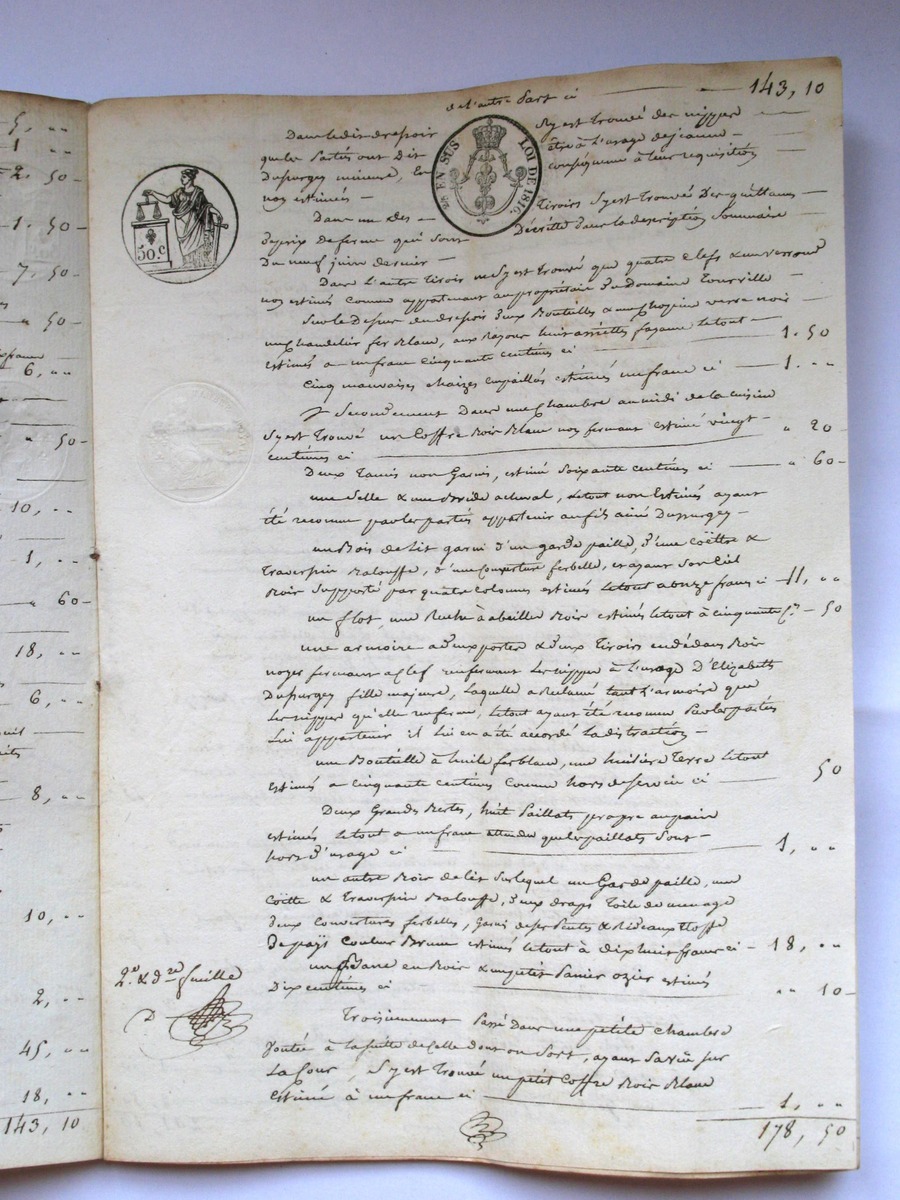 de l'autre Part ci 143, 10
Dans le dit drepoir s'y est trouvé des nippes
que les Partés ont dit être à l'usage de jeanne
Dupurgey mineure, et consequemment à leur requisition
non estimés
Dans un des tiroirs s'y est trouvé Des quittances
De prix de ferme qui sont Décrittes dans la description Sommaire
Du neuf juin dernier
Dans l'autre tiroir ne s'y est trouvé que quatre clefs & un verroux
non estimés comme appartenant au propriétaire du Domaine Tourville
Sur le Dessus du drepoir deux Bouteilles & une chopine verre noir
un chandelier fer blanc, aux rayons huit assiettes fayance le tout
estimés a un franc cinquante centimes ci 1. 50
Cinq mauvaises chaizes empaillés estimés un franc ci 1. "
Secondement Dans une chambre au midi de la cuisine
s'y est trouvé un Coffre Bois Blanc non fermant estimé vingt
centimes ci " 20
Deux Tamis non Garnis, estimé soixante centimes ci " 60
une Selle & une Bride a cheval, le tout non Estimés ayant
été reconnu par les partés appartenir au fils ainé Dupurgey
un Bois de Lit garni d'un garde paille, d'une coëttre &
Traversin Balouffe, d'une couverture ferbelle, et ayant son Ciel
Bois Supporté par quatre colonnes estimés le tout a onze francs ci 11, "
un flot, une Ruche à abeille Bois estimés le tout à cinquante c. 50
une armoire a deux portes & deux Tiroirs en dedans Bois
noyer fermant a clef renfermant les nippes à l'usage d'Elizabeth
Dupurgey fille majeure, laquelle a Reclamé tant l'armoire que
les nippes qu'elle renferme, le tout ayant été reconnu Par les partés
lui appartenir il lui en a été accordé la distraction
une Bouteille à huile ferblanc, une huilière Terre le tout
Estimés a cinquante centimes comme hors de service ci 50
Deux Grandes Bertes, huit Paillats propre au pain
estimés le tout a un franc attendu que les paillats sont
hors d'usage ci 1, "
un autre Bois de lit sur lequel un Garde paille, une
Coëtte & Traversin Balouffe, deux draps Toile de menage
deux couvertures ferbelles, garni de ses Pentes & Rideaux étoffe
de pays Couleur Brune estimés le tout à dix huit francs ci 18, "
un en Bois & un petit Panier ozier estimés
Dix centimes ci " 10
Troisiemement Passé dans une petitte Chambre
Joutée à la suitte de Celle dont on Sort, ayant sa vüe sur
la Cour, s'y est trouvé un petit Coffre Bois Blanc
Estimé à un franc ci 1, "
178, 50
2.e & d.re feuille
D
50.C
EN SUS
LOI DE 1816.
5, "
1
2. 50
1. 50
7, 50
" 50
6, "
" 50
10, "
1, "
" 60
18, "
6, "
8, "
10, "
2, "
45, "
18, "
143, 10